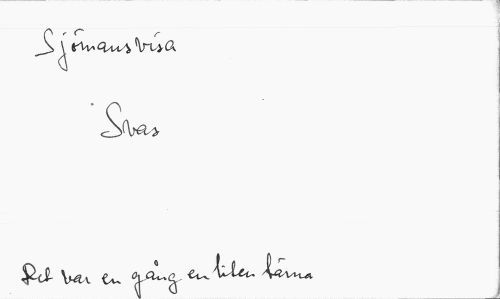 Sjömansvisa
Svas
Det var en gång en liten tärna